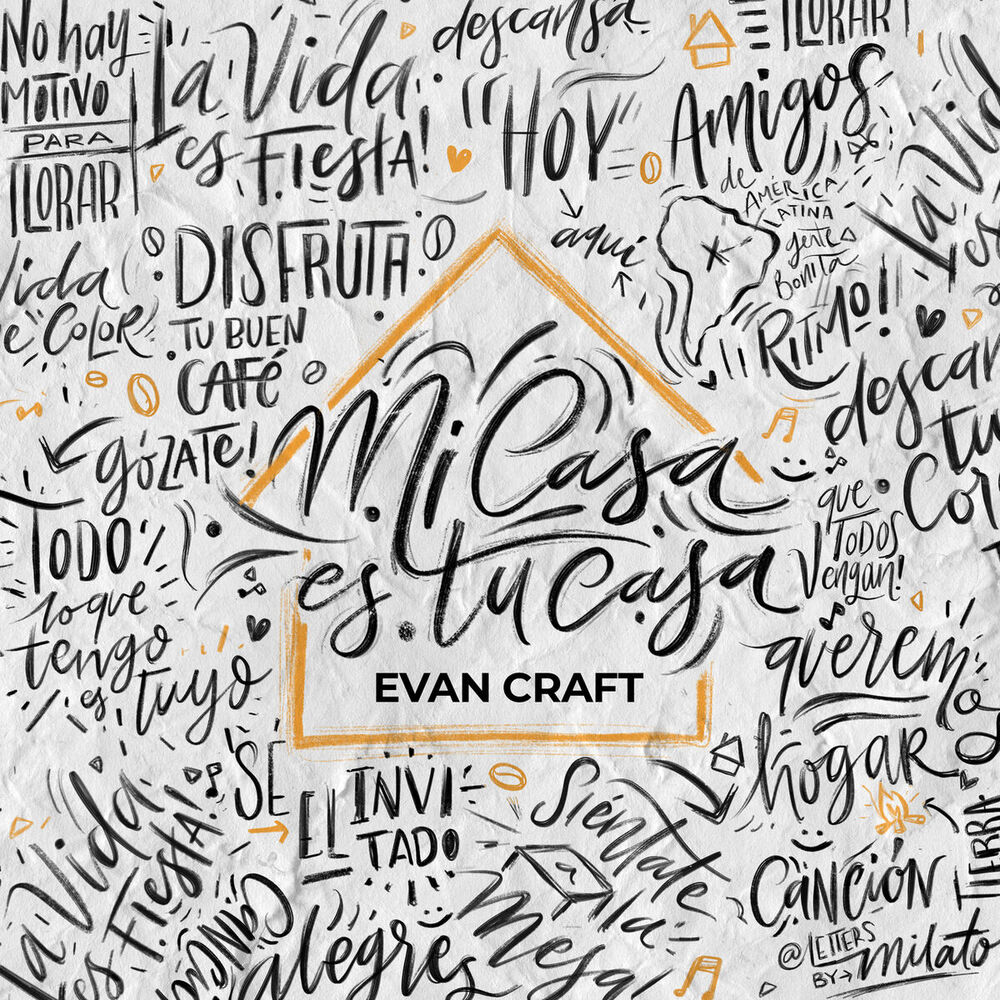 No hay
MOTIVO
PARA
LLORAR
La Vida
es Fiesta!
descansa
LLORAR
HOY
aquí
Amigos
de
AMÉRICA
LATINA
gente
Bonita
La Vid
es
Vida
de COLOR
DISFRUTA
TU BUEN
CAFÉ
RITMO!
descan
tu
Cor
GÓZATE!
Mi Casa
es tu casa
EVAN CRAFT
que
TODOS
Vengan!
TODO
lo que
tengo
es tuyo
querem
hogar
SÉ
EL INVI
TADO
La Vida
es Fiesta!
Siéntate
a la
mesa
TIERRA
CANCIÓN
alegres
@LETTERS
BY
milato